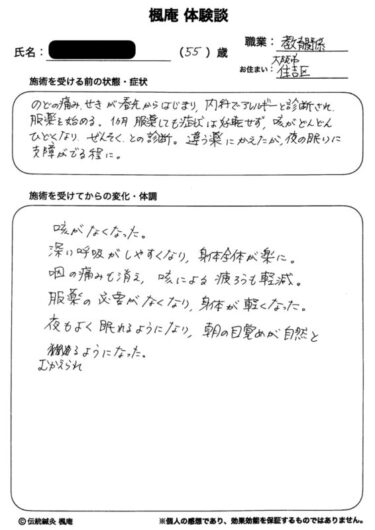 楓庵 体験談
氏名： （55）歳
職業： 教育関係
お住まい： 大阪市
住吉区
施術を受ける前の状態・症状
のどの痛み、せきが春先からはじまり、内科でアレルギーと診断され、
服薬を始める。1か月服薬しても症状は好転せず、咳がどんどん
ひどくなり、ぜんそくとの診断。違う薬にかえたが、夜の眠りに
支障がでる程に。
施術を受けてからの変化・体調
咳がなくなった。
深い呼吸がしやすくなり、身体全体が楽に。
咽の痛みも消え、咳による疲ろうも軽減。
服薬の必要がなくなり、身体が軽くなった。
夜もよく眠れるようになり、朝の目覚めが自然と
るようになった。
むかえられ
© 伝統鍼灸 楓庵
※個人の感想であり、効果効能を保証するものではありません。